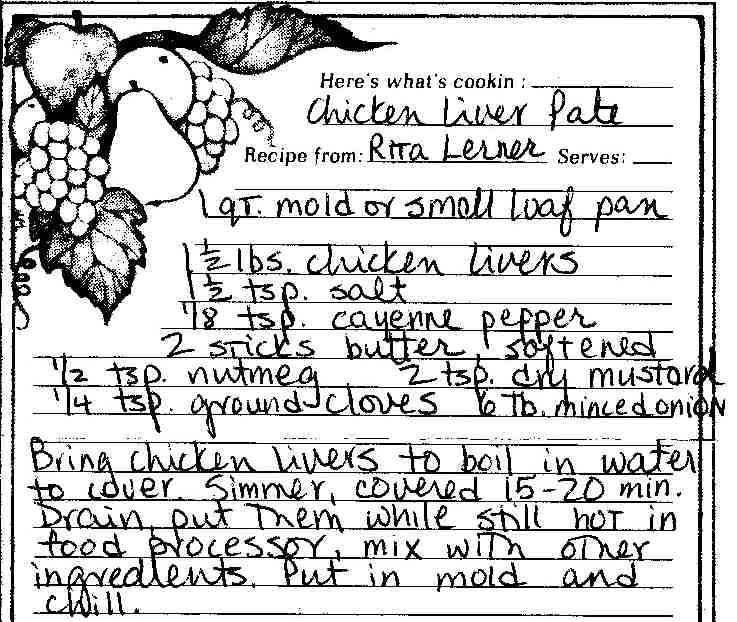 Here's what's cookin:
Chicken Liver Pate
Recipe from: Rita Lerner Serves:
1 qt. mold or small loaf pan
1 1/2 lbs. chicken livers
1 1/2 tsp. salt
1/8 tsp. cayenne pepper
2 sticks butter softened
1/2 tsp. nutmeg 2 tsp. dry mustard
1/4 tsp. ground cloves 6 Tb. minced onion
Bring chicken livers to boil in water
to cover. Simmer, covered 15-20 min.
Drain, put them while still hot in
food processor, mix with other
ingredients. Put in mold and
chill.